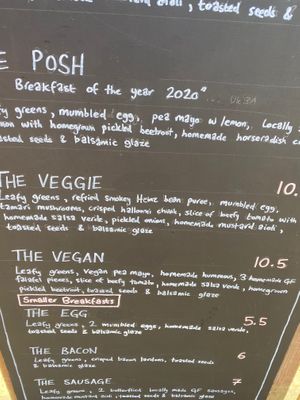 toasted seeds &
E POSH
Breakfast of the year 2020"
fy greens, mumbled egg, pea mayo w lemon, Locally
with homegrown pickled beetroot, homemade horseradish
asted seeds & balsamic glaze
THE VEGGIE 10.
Leafy greens, refried smokey Heinz bean puree, mumbled egg,
tamari mushrooms, crisped halloumi chunk, slice of beefy tomato with
homemade salsa verde, pickled onion, homemade mustard aioli,
toasted seeds & balsamic glaze
THE VEGAN 10.5
Leafy greens, vegan pea mayo, homemade hummus, 3 homemade GF
falafel pieces, slice of beefy tomato, homemade salsa verde, homegrown
pickled beetroot, toasted seeds & balsamic glaze
Smaller Breakfasts
THE EGG 5.5
Leafy greens, 2 mumbled eggs, homemade salsa verde,
toasted seeds & balsamic glaze
THE BACON 6
Leafy greens, crisped bacon lardons, toasted seeds
& balsamic glaze
THE SAUSAGE 7
Leafy greens, 2 butterflied locally made GF sausages,
homemade mustard aioli, toasted seeds & balsamic glaze